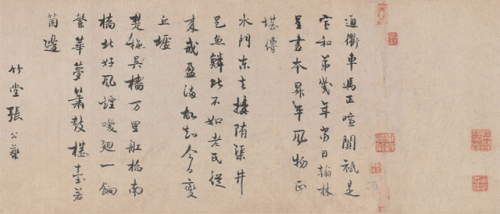 通衢車馬正喧闐祗是
宣和第幾年當日翰林
呈畫本昇平風物正
堪傳
水門東去接隋渠井
邑魚鱗比不如老氏從
來戒盈滿故知今日變
丘墟
楚柂吳檣万里舡橋南
橋北好風煙喚廻一餉
繁華夢簫鼓樓臺若
箇邊
竹堂張公藥